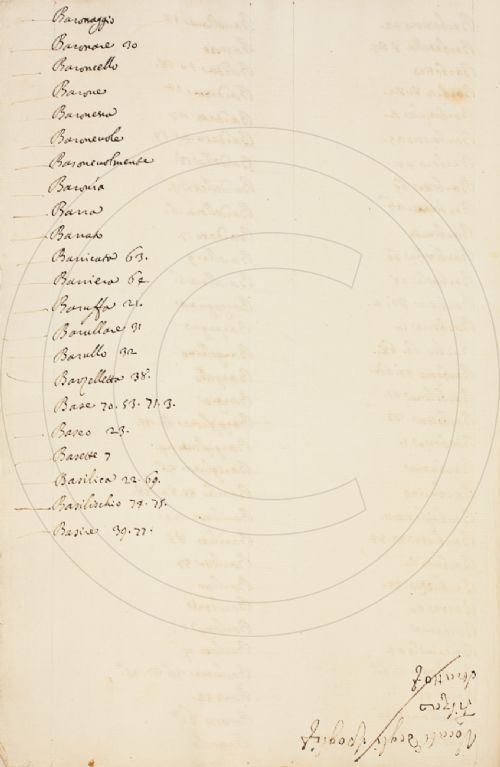 Baronaggio
Baronare 30
Baroncello
Barone
Baronessa
Baronevole
Baronevolmente
Baronia
Barra
Barrato
Barricata 63.
Barriera 62
Baruffa 21.
Barullare 31
Barullo 32
Barzelletta 38.
Base 70. 53. 71. 3.
Baseo 23.
Basette 7
Basilica 22. 69.
Basilischio 74. 75.
Basire 39. 77.